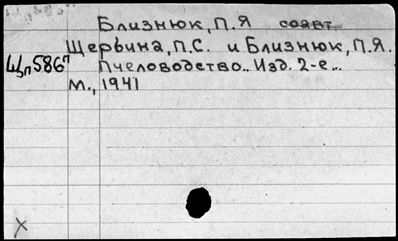 Близнюк, П.Я соавт.
Щербина, П.С. и Близнюк, П.Я.
Пчеловодство. Изд. 2-е.
М., 1941